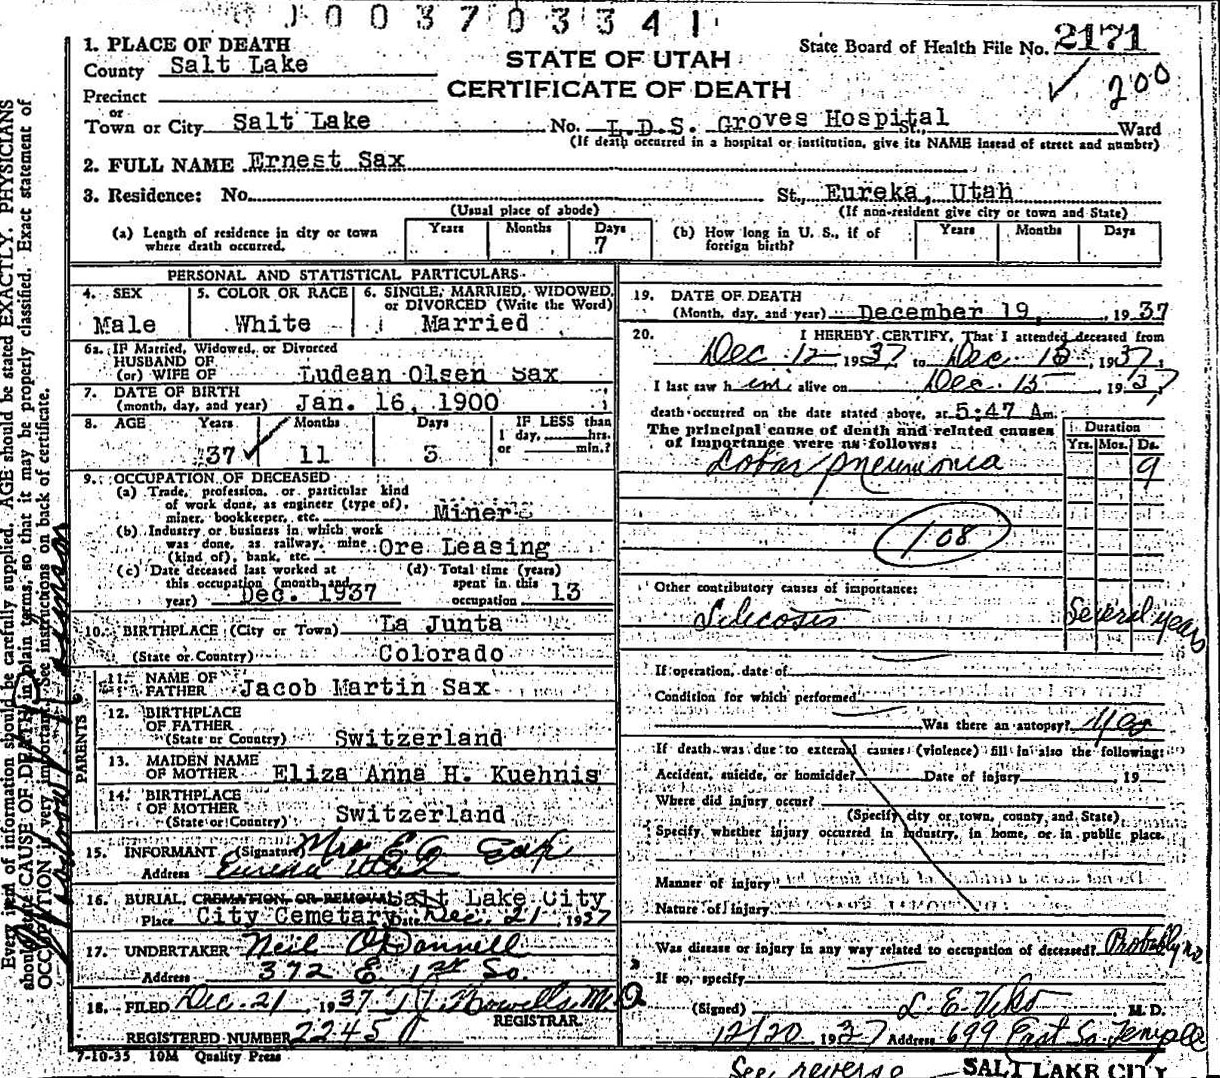 0 0 3 7 0 3 3 4 1
STATE OF UTAH
CERTIFICATE OF DEATH
State Board of Health File No. 2171
200
1. PLACE OF DEATH
County Salt Lake
Precinct
or
Town or City Salt Lake No. L.D.S. Groves Hospital St., Ward
(If death occurred in a hospital or institution, give its NAME instead of street and number)
2. FULL NAME Ernest Sax
3. Residence: No. St., Eureka, Utah
(Usual place of abode) (If non-resident give city or town and State)
(a) Length of residence in city or town where death occurred. Years Months Days 7 (b) How long in U. S., if of foreign birth? Years Months Days
PERSONAL AND STATISTICAL PARTICULARS
4. SEX 5. COLOR OR RACE 6. SINGLE, MARRIED, WIDOWED, or DIVORCED (Write the Word)
Male White Married
6a. IF Married, Widowed, or Divorced
HUSBAND OF
(or) WIFE OF Ludean Olsen Sax
7. DATE OF BIRTH
(month, day, and year) Jan. 16, 1900
8. AGE Years Months Days IF LESS than
1 day, hrs.
or min.?
37 11 3
9. OCCUPATION OF DECEASED
(a) Trade, profession, or particular kind
of work done, as engineer (type of),
miner, bookkeeper, etc. Miner
(b) Industry or business in which work
was done, as railway, mine
(kind of), bank, etc. Ore Leasing
(c) Date deceased last worked at
this occupation (month and
year) Dec. 1937
(d) Total time (years)
spent in this
occupation 13
10. BIRTHPLACE (City or Town) La Junta
(State or Country) Colorado
PARENTS
11. NAME OF
FATHER Jacob Martin Sax
12. BIRTHPLACE
OF FATHER
(State or Country) Switzerland
13. MAIDEN NAME
OF MOTHER Eliza Anna H. Kuehnis
14. BIRTHPLACE
OF MOTHER
(State or Country) Switzerland
15. INFORMANT (Signature) Mrs Sax
Address Eureka Utah
16. BURIAL, CREMATION OR REMOVAL Salt Lake City
Place City Cemetary Date Dec. 21, 1937
17. UNDERTAKER Neil O'Donnell
Address 372 E 1st So.
18. FILED Dec. 21, 1937 Howells M.D.
REGISTRAR
REGISTERED NUMBER 2245
7-10-35 10M Quality Press
19. DATE OF DEATH
(Month, day, and year) December 19, 1937
20. I HEREBY CERTIFY, That I attended deceased from
Dec 12 1937 to Dec. 1937,
I last saw him alive on Dec. 15 1937,
death occurred on the date stated above, at 5:47 Am.
The principal cause of death and related causes
of importance were as follows:
Duration
Yrs. Mos. Ds.
Lobar pneumonia 9
108
Other contributory causes of importance:
Silicosis Several years
If operation, date of
Condition for which performed
Was there an autopsy? Yes
If death was due to external causes (violence) fill in also the following:
Accident, suicide, or homicide? Date of injury , 19
Where did injury occur?
(Specify city or town, county, and State)
Specify whether injury occurred in industry, in home, or in public place.
Manner of injury
Nature of injury
Was disease or injury in any way related to occupation of deceased? Probably no.
If so, specify
(Signed) L. E. Viko M. D.
12/20 1937 Address 699 East So. Temple
See reverse SALT LAKE CITY
Every item of information should be carefully supplied. AGE should be stated EXACTLY. PHYSICIANS
should state CAUSE OF DEATH in plain terms, so that it may be properly classified. Exact statement of
OCCUPATION is very important. See instructions on back of certificate.